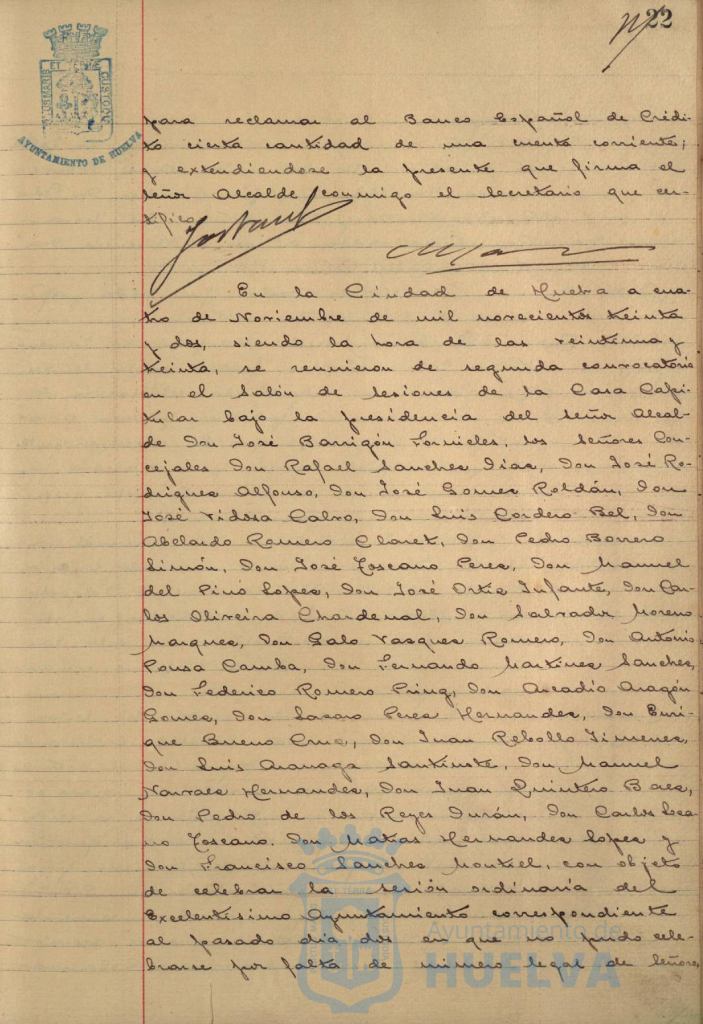 22
PORTUS MARIS ET TERRE CUSTODIA
AYUNTAMIENTO DE HUELVA
para reclamar al Banco Español de Crédi-
to cierta cantidad de una cuenta corriente;
y extendiendose la presente que firma el
señor Alcalde conmigo el Secretario que cer-
tifico
En la Ciudad de Huelva a cua-
tro de Noviembre de mil novecientos treinta
y dos, siendo la hora de las veintiuna y
treinta, se reunieron de segunda convocatoria
en el Salón de sesiones de la Casa Capi-
tular bajo la presidencia del señor Alcal-
de Don José Barrigón Fornieles, los señores Con-
cejales Don Rafael Sanches Dias, Don José Ro-
drigues Alfonso, Don José Gomes Roldán, Don
José Vidosa Calvo, Don Luis Cordero Bel, Don
Abelardo Romero Claret, Don Pedro Borrero
Limón, Don José Toscano Peres, Don Manuel
del Pino Lopes, Don José Ortis Infante, Don Car-
los Oliveira Chardenal, Don Salvador Moreno
Marques, Don Galo Vasques Romero, Don Antonio
Pousa Camba, Don Fernando Martines Sanches,
Don Federico Romero Pring, Don Arcadio Aragón
Gomes, Don Lasaro Peres Hernandes, Don Enri-
que Bueno Crus, Don Juan Rebollo Jimenes,
Don Luis Aranaga Santiuste, Don Manuel
Narvaes Hernandes, Don Juan Quintero Baes,
Don Pedro de los Reyes Durán, Don Carlos Sea-
no Toscano. Don Matias Hernandes Lopes y
Don Francisco Sanches Montiel, con objeto
de celebrar la sesión ordinaria del
Excelentísimo Ayuntamiento correspondiente
al pasado dia dos en que no pudo cele-
brarse por falta de número legal de señores
Ayuntamiento de
HUELVA